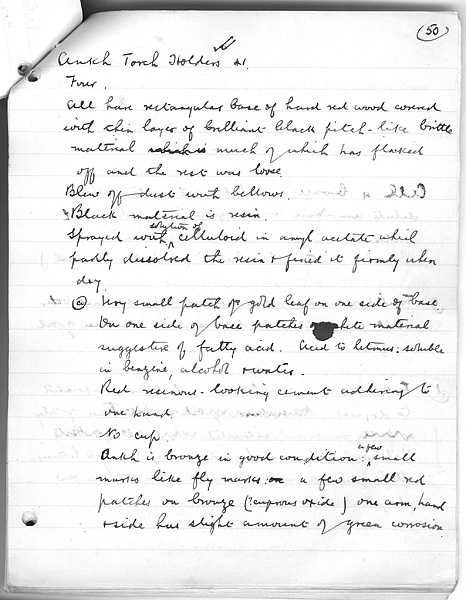 50
Ankh Torch Holders
Four.
All have rectangular base of hard red wood covered
with thin layer of brilliant black pitch-like brittle
material which is much of which has flaked
off and the rest was loose.
Blew off dust with bellows.
Black material is resin.
Sprayed with solution of celluloid in amyl acetate which
partly dissolved the resin & fixed it firmly when
dry.
(a) Very small patch of gold leaf on one side of base.
On one side of base patches white material
suggestive of fatty acid. Acid to litmus: soluble
in benzine, alcohol & water.
Red resinous-looking cement adhering to
one hand.
No cup
Ankh is bronze in good condition: a few small
marks like fly marks & a few small red
patches on bronze (? cuprous oxide) one arm, hand
& side has slight amount of green corrosion